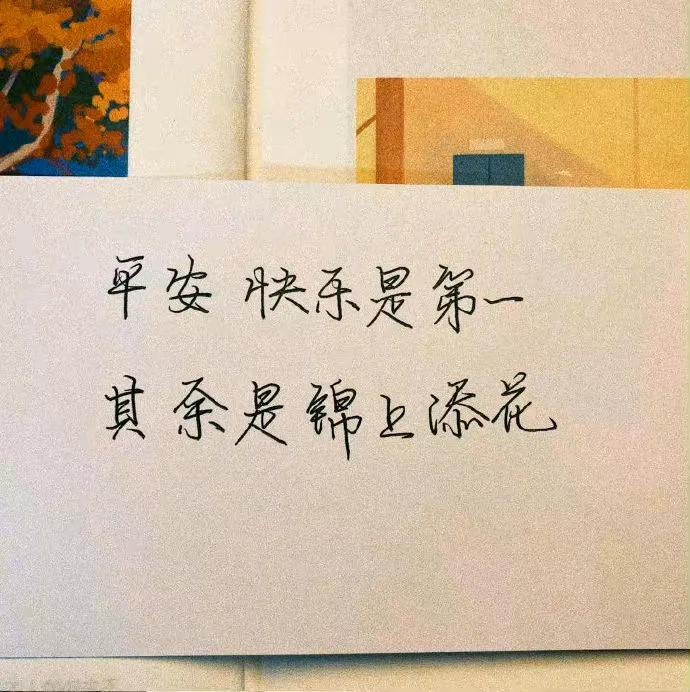 平安 快乐是第一
其余是锦上添花